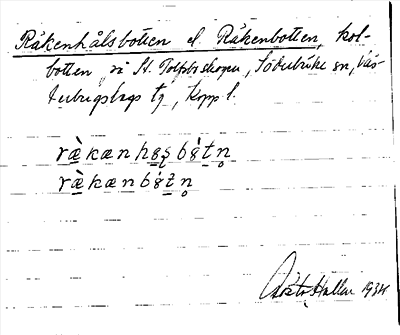 Råkenhålsbotten el. Råkenbotten, kol-
botten i St. Tolfsboskogen, Söderbärke sn, Väs-
terbergslags tg, Kopp l.
ràkænhɷʂbòtn̥
ràkænbòtn̥
Hallen 1934